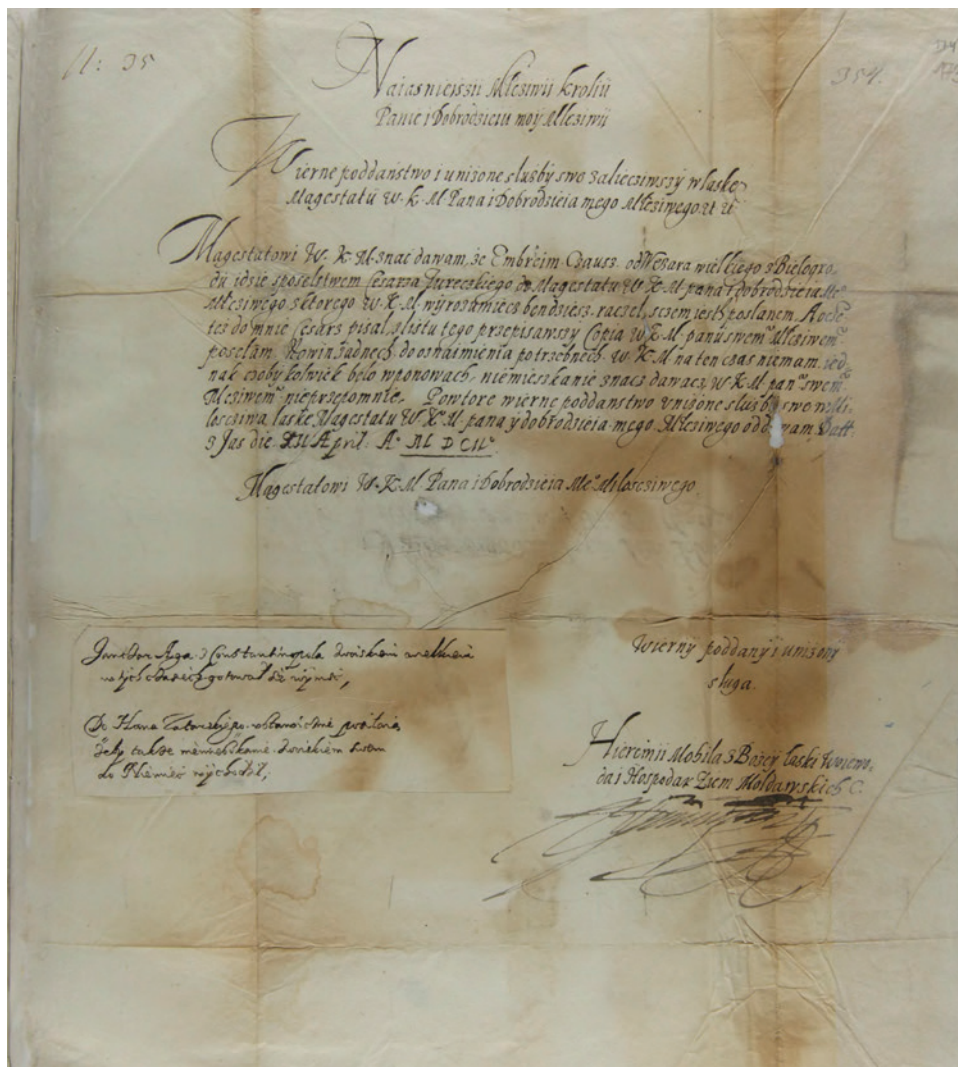 N: 35
354.
Naiasnieiszii Młesiwii kroliu
Panie i Dobrodzieiu moÿ Młesiwii
Wierne poddaństwo i unizone służby swe zalieczimszÿ w łaske
Magestatu W. K. M. Pana i Dobrodzieia mego Młesiwego ut u
Magestatowi W. K. M. znać dawam, że Embreim Czausz od Wezara wielkiego z Bielogro„
du idzie sposelstwem Cesarza Tureczkiego do Magestatu W. K. M. pana i dobrodzieia Me°
Młesiwego, z ktorego W. K. M. wÿrozumiecz bendziesz raczel, sczem iest poslanem. A
tez do mnie Cesarz pisal, z listu tego przepisawszÿ Copia W. K. M. panu swem° Młesiwem°
poselam. Nowin żadnech, do oznaimienia potrzebnech W. K. M. na ten czas niemam, ied„
nak czobÿ kolwiek belo w ponowach, niemieszkanie znacz dawacz W. K. M. pan° swem°
Młesiwem° nieprzepomnie. Powtore wierne poddanstwo unizone służbÿ swe w Mi„
losciwa łaske Magestatu W. K. M. pana ÿ dobrodzieia mego Młesiwego oddawam, Datt.
z Jas die XII April: A° M D CII°
Magestatowi W. K. M. Pana i Dobrodzieia Me° Milosciwego.
Aga z Constantinopola zwoiskiem wielkiem
w tÿch czasiech gotowal sie
Do Hana Tatarskiego
zebÿ takze niemieszkanie zwoiskiem swem
do Niemiec wÿchodzil,
Wiernÿ poddanÿ i unizonÿ
sługa.
Hieremii Mohila z Bożeÿ łaski Woiewo„
da i Hospodar Ziem Mołdawskich C.